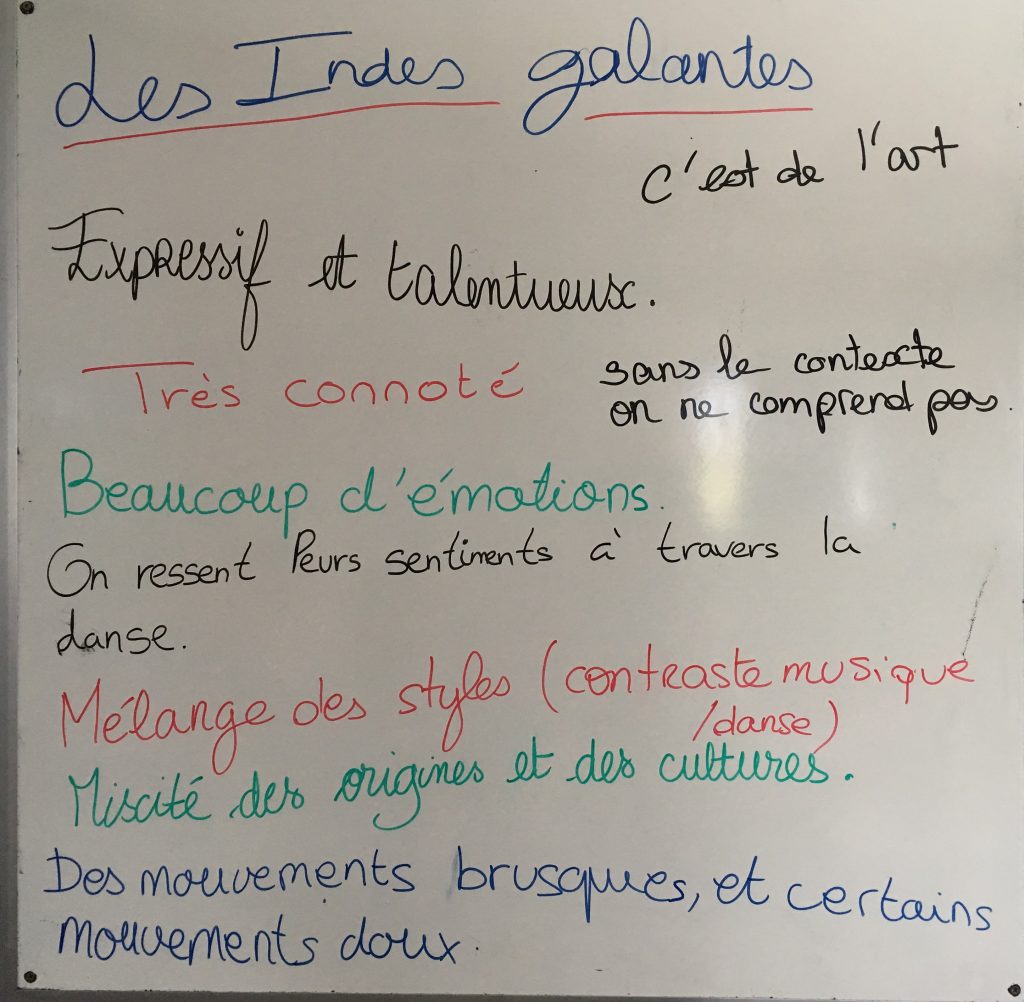 Les Indes galantes
c'est de l'art
Expressif et talentueux.
Très connoté
sans le contexte
on ne comprend pas.
Beaucoup d'émotions.
On ressent leurs sentiments à travers la
danse.
Mélange des styles (contraste musique
/danse)
Mixcité des origines et des cultures.
Des mouvements brusques, et certains
mouvements doux.